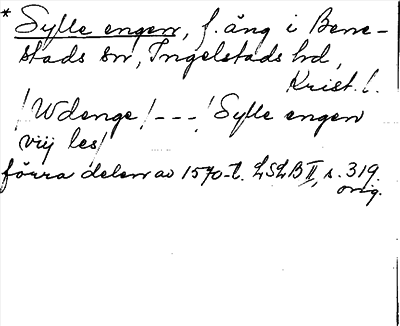 * Sylle engen, f. äng i Bene-
stads sn, Ingelstads hd,
Krist. l.
/Wdenge/ - - - / Sylle engen
viij les/
förra delen av 1570-t. LSLB II, s. 319.
orig.